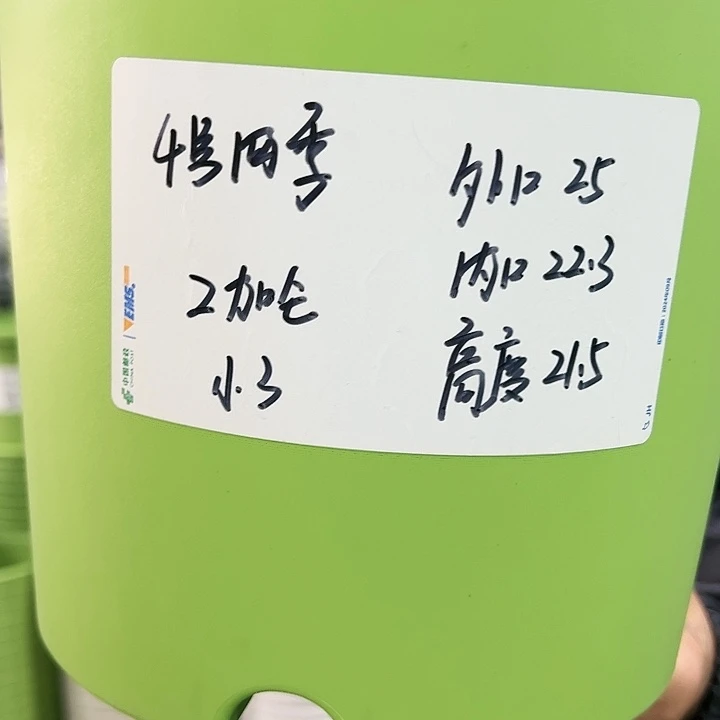 4号四季
2加仑
小.3
外口 25
内口 22.3
高度 21.5
EMS
中国邮政
CHINA POST